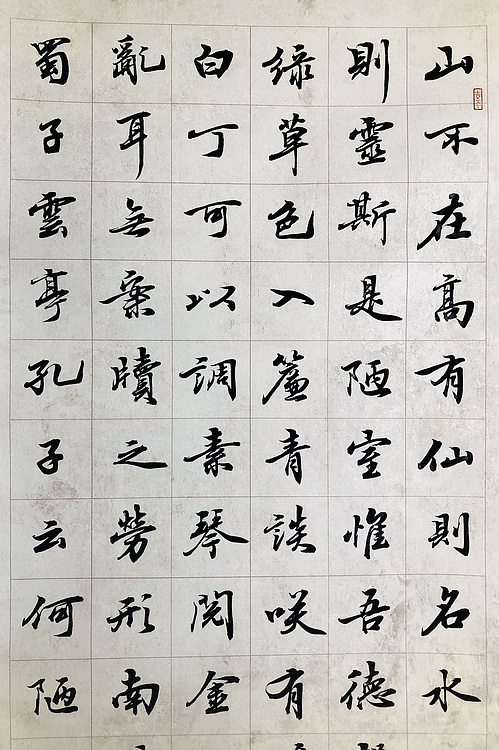 山不在高有仙則名水
則靈斯是陋室惟吾德
緑草色入簾青談咲有
白丁可以調素琴閱金
亂耳無案牘之勞形南
蜀子雲亭孔子云何陋